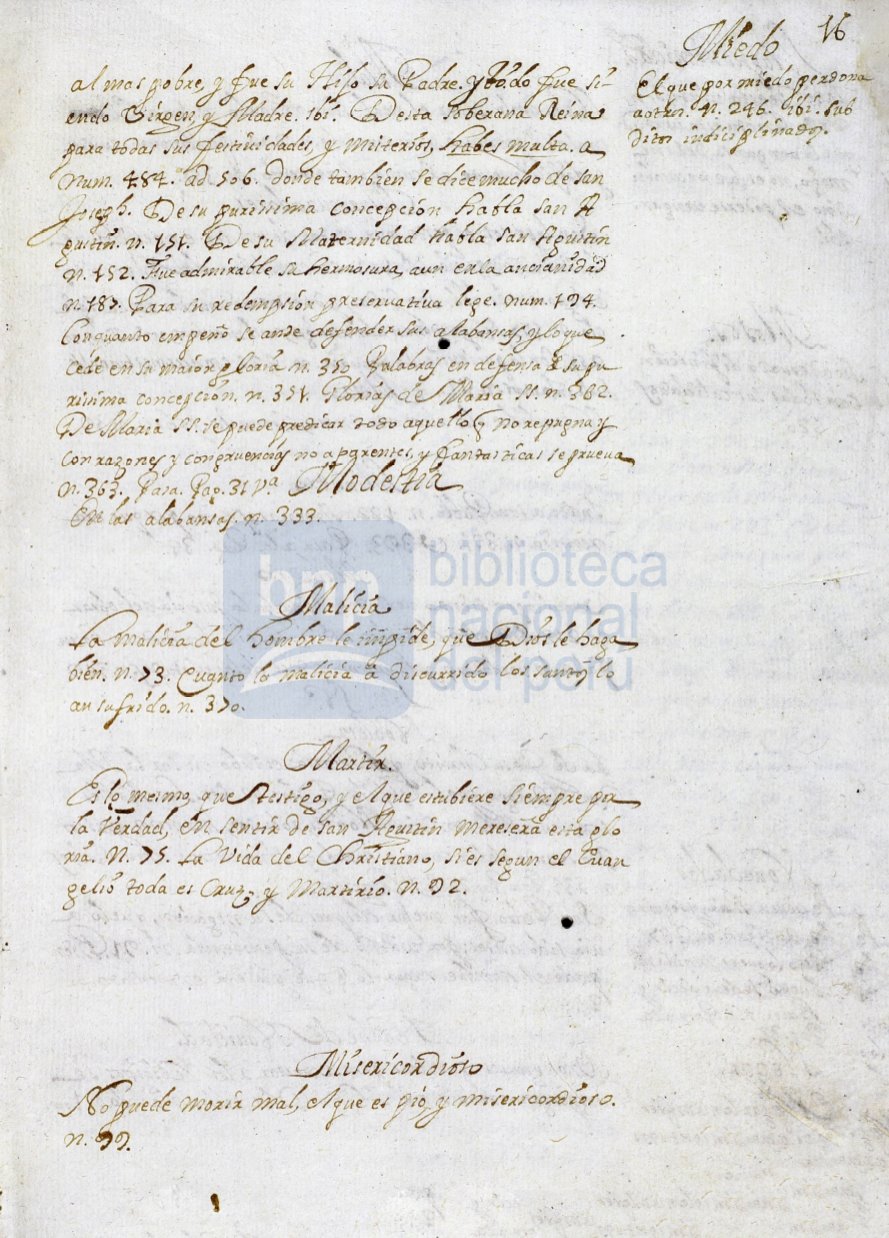 16
al mas pobre, y fue su Hijo su Padre. y todo fue si-
endo Virgen, y Madre. ibi. Desta soberana Reina
para todas sus festiuidades, y Misterios, habes multa. a
num. 484. ad 506. donde tambien se dice mucho de san
Joseph. De su purissima concepción habla san A-
gustin. n. 151. De su Maternidad habla san Agustin
n. 152. Fue admirable su hermosura, aun en la ancianidad
n. 187. Para su redempsión preservativa lege. num. 194.
Con quanto empeño se ande defender sus alabansas, y lo que
cede en su maior gloria n. 350 Palabras en defensa de su pu-
rissima concepción. n. 351. Glorias de Maria SS. n. 362.
De Maria SS. se puede predicar todo aquello q no repugna y
con razones y congruencias no aparentes, y fantasticas se prueva
n. 363. Pasa. Pag. 31 va.
Modestia
En las alabansas. n. 333.
Malicia
La malicia del hombre le impide, que Dios le haga
bien. n. 73. Cuanto la malicia à discurrido los santos lo
an sufrido. n. 370.
Martir.
Es lo mesmo, que testigo, y el que estubiere siempre por
la Verdad, en sentir de san Agustin mereserà esta glo-
ria. n. 75. La Vida del Christiano, si es segun el Euan-
gelio toda es Cruz, y Martirio. n. 92.
Misericordioso
No puede morir mal, el que es pio, y misericordioso.
n. 99.
Miedo
El que por miedo perdona
a otro. n. 246. ibi. sub-
ditos indiciplinados.
bnp biblioteca
nacional
del perú